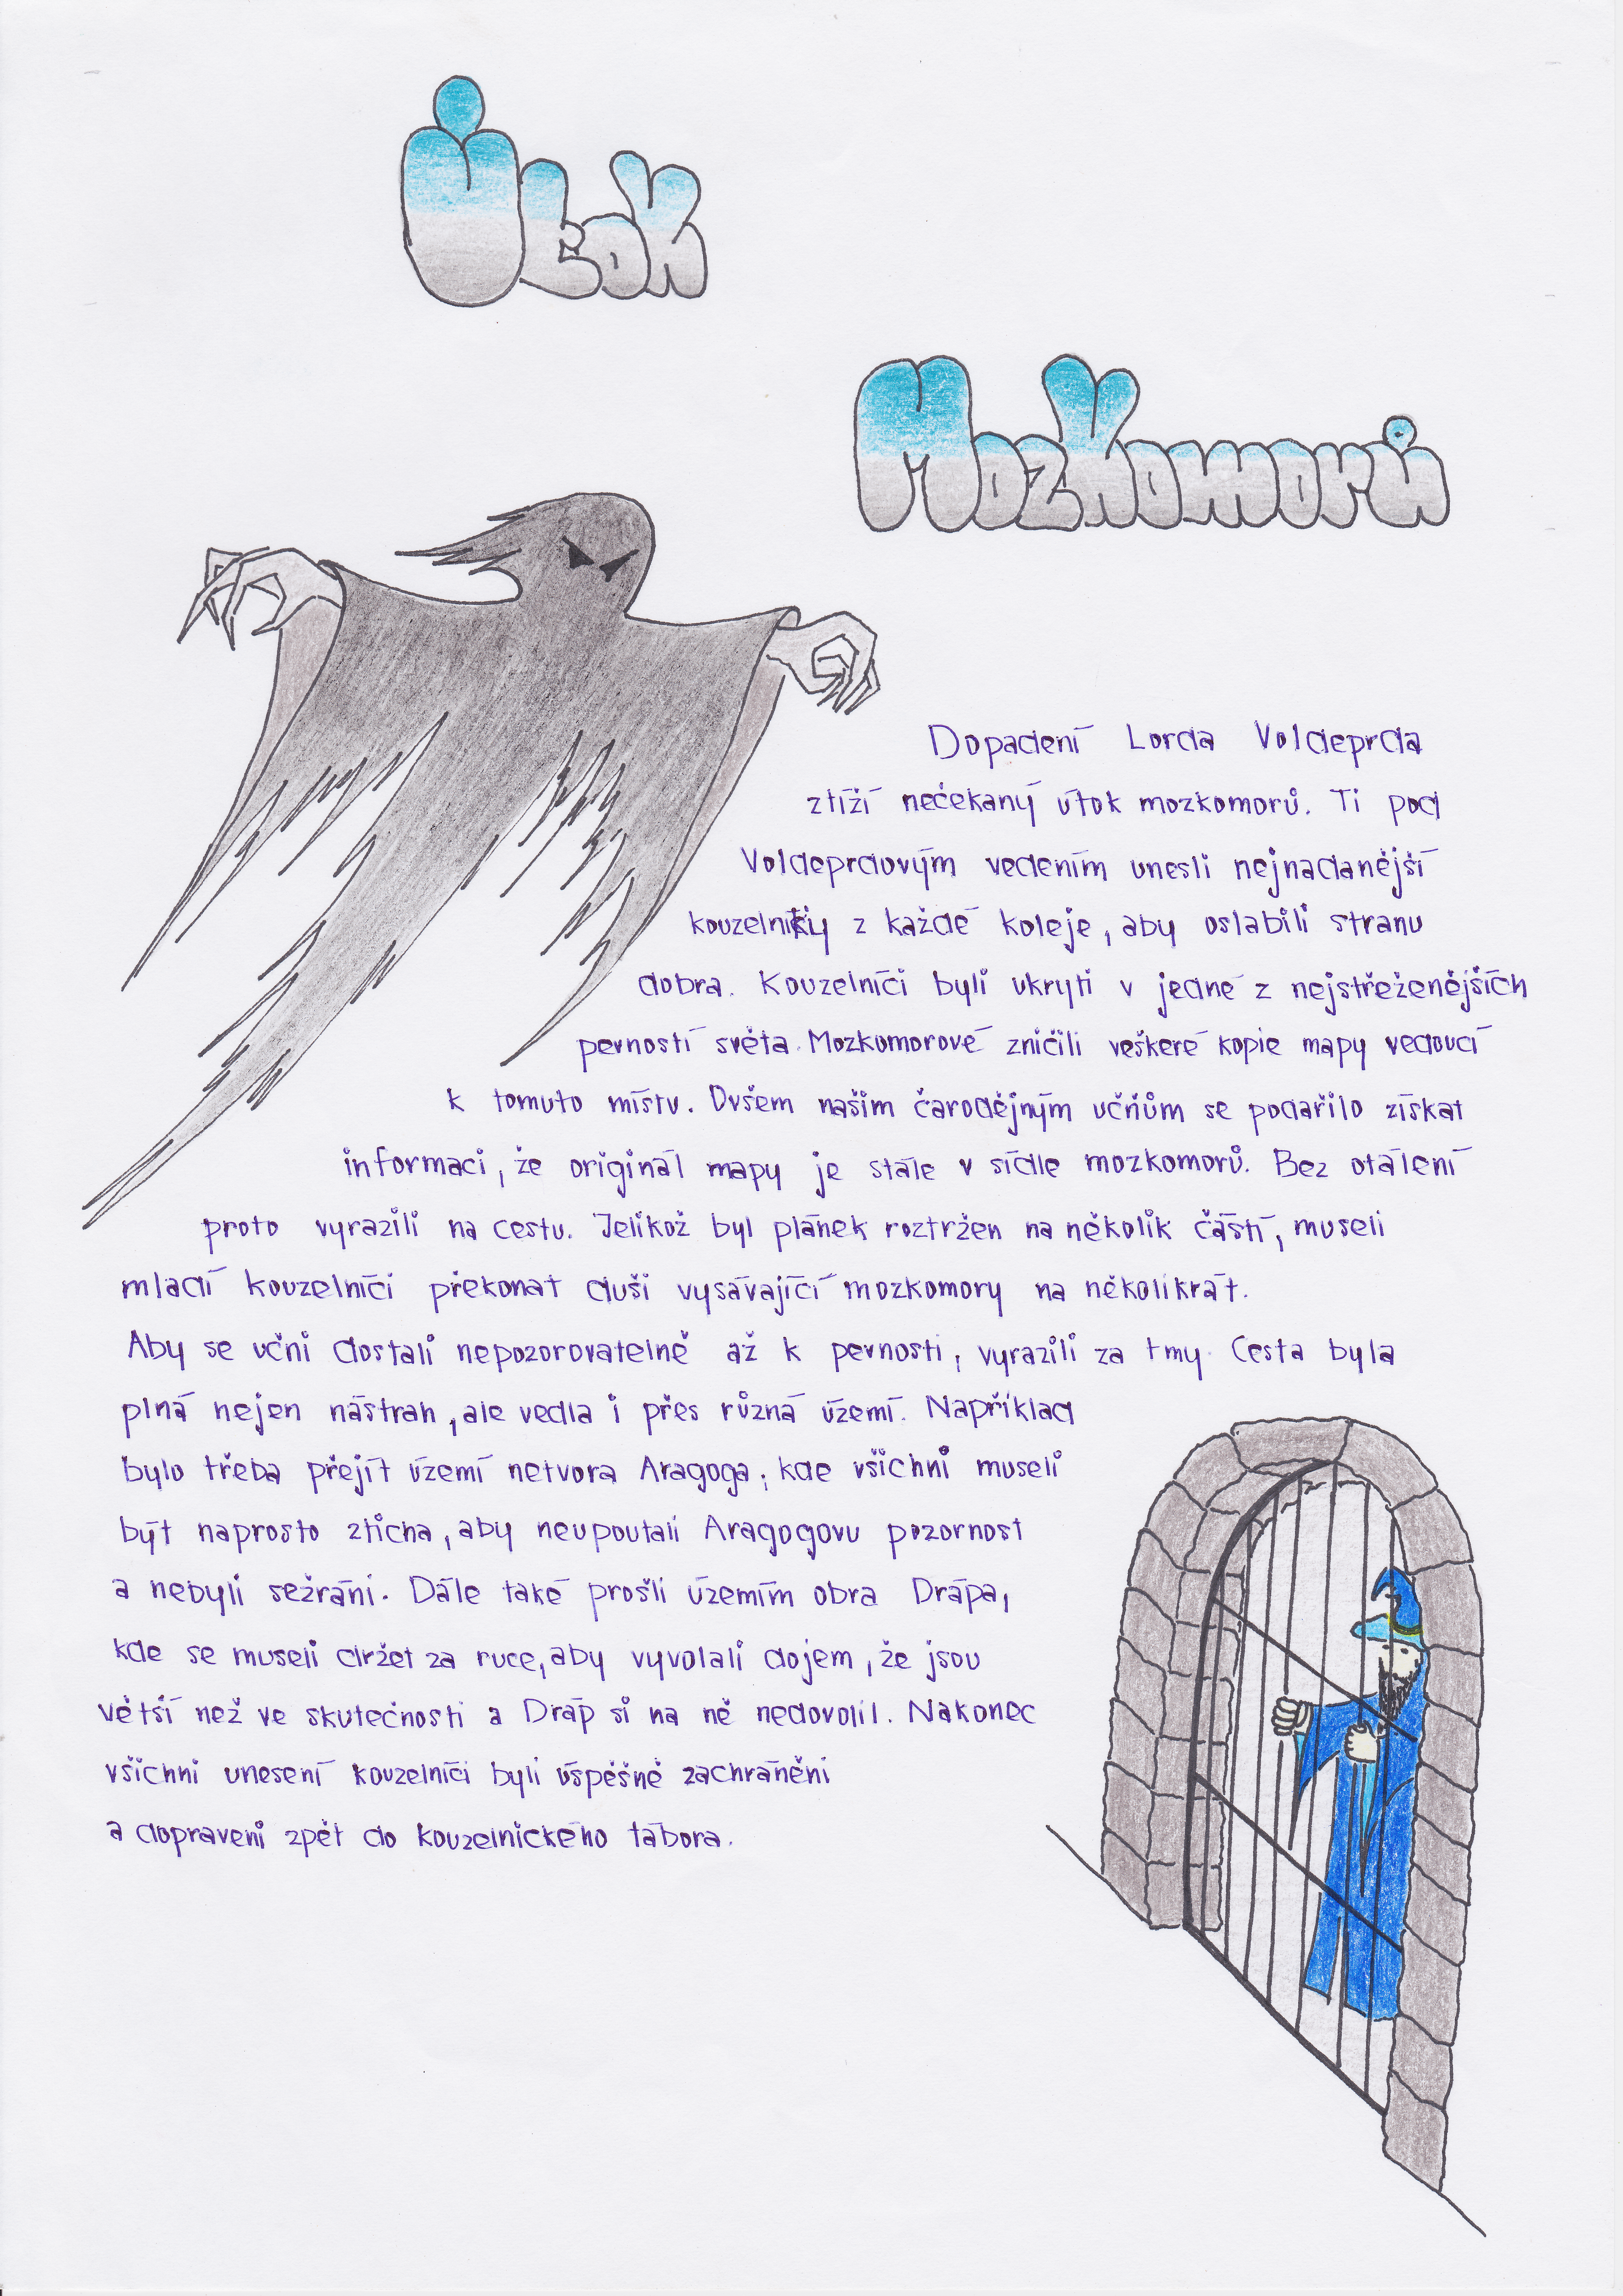 Útok
Mozkomorů
Dopadení Lorda Voldeprda
ztíží nečekaný útok mozkomorů. Ti pod
Voldeprdovým vedením unesli nejnadanější
kouzelníky z každé koleje, aby oslabili stranu
dobra. Kouzelníci byli ukryti v jedné z nejstřeženějších
pevností světa. Mozkomorové zničili veškeré kopie mapy vedoucí
k tomuto místu. Ovšem našim čarodějným učňům se podařilo získat
informaci, že originál mapy je stále v sídle mozkomorů. Bez otálení
proto vyrazili na cestu. Jelikož byl plánek roztržen na několik částí, museli
mladí kouzelníci překonat duši vysávající mozkomory na několikrát.
Aby se učni dostali nepozorovatelně až k pevnosti, vyrazili za tmy. Cesta byla
plná nejen nástrah, ale vedla i přes různá území. Například
bylo třeba přejít území netvora Aragoga, kde všichni museli
být naprosto zticha, aby neupoutali Aragogovu pozornost
a nebyli sežráni. Dále také prošli územím obra Drápa,
kde se museli držet za ruce, aby vyvolali dojem, že jsou
větší než ve skutečnosti a Dráp si na ně nedovolil. Nakonec
všichni unesení kouzelníci byli úspěšně zachráněni
a dopraveni zpět do kouzelnického tábora.